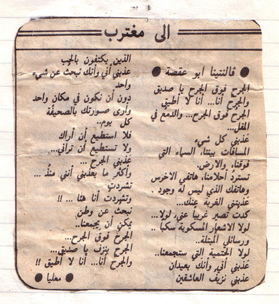 الى مغترب
● فالنتينا ابو عقصة ●
الجرح فوق الجرح يا صديق
والجرح أنا... أنا لا أطيق
الجرح فوق الجرح... والدمع في
المقل...
عذبني كل شيء
المسافات بيننا، السماء التي
فوقنا، والارض.
تسترد أحلامنا، هاتفي الاخرس
وهاتفك الذي ليس له وجود.
عذبتني الغربة عنك...
كدت تصبح غريبا عني، لولا...
لولا الاشعار المسكوبة سكبا..
ورسائلي المبتلة.
لولا الحتمية التي ستجمعنا..
عذبني أني وأنك بعيدان
عذبني نزيف العاشقين
الذين يكتفون بالحب
عذبني أني وأنك نبحث عن شيء
واحد
دون أن نكون في مكان واحد
وأرى صورتك بالصحيفة
كل يوم..
فلا استطيع أن أراك
ولا تستطيع أن تراني..
عذبني الجرح...
وأكثر ما يعذبني أنني منذ...
تشردت.
وتشردت أنا هنا... !!
نبحث عن وطن
يمكن أن يجمعنا..
الجرح فوق الجرح..
الجرح ينزف يا صديق..
والجرح أنا... أنا لا أطيق !!
● معليا ●